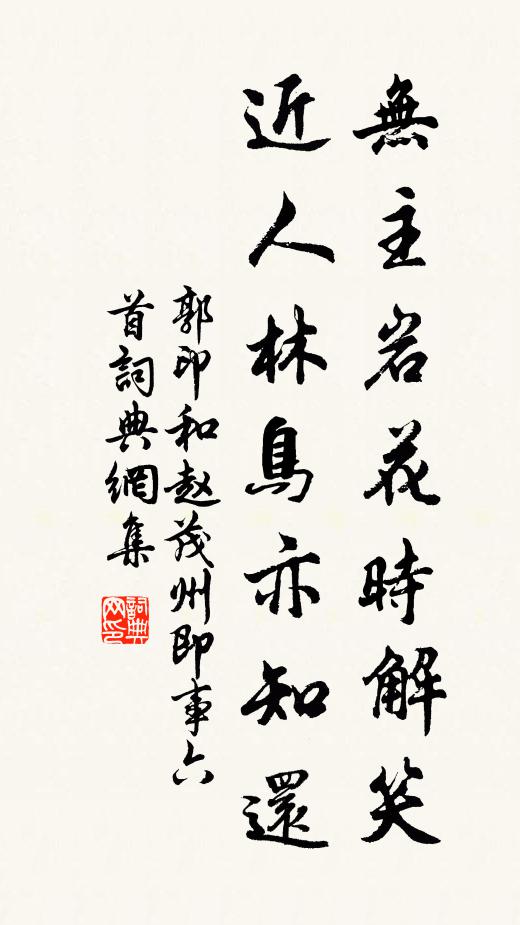 無主岩花時解笑
近人林鳥亦知還
郭印和赵茂州即事六
首詞典網集
詞典
网印